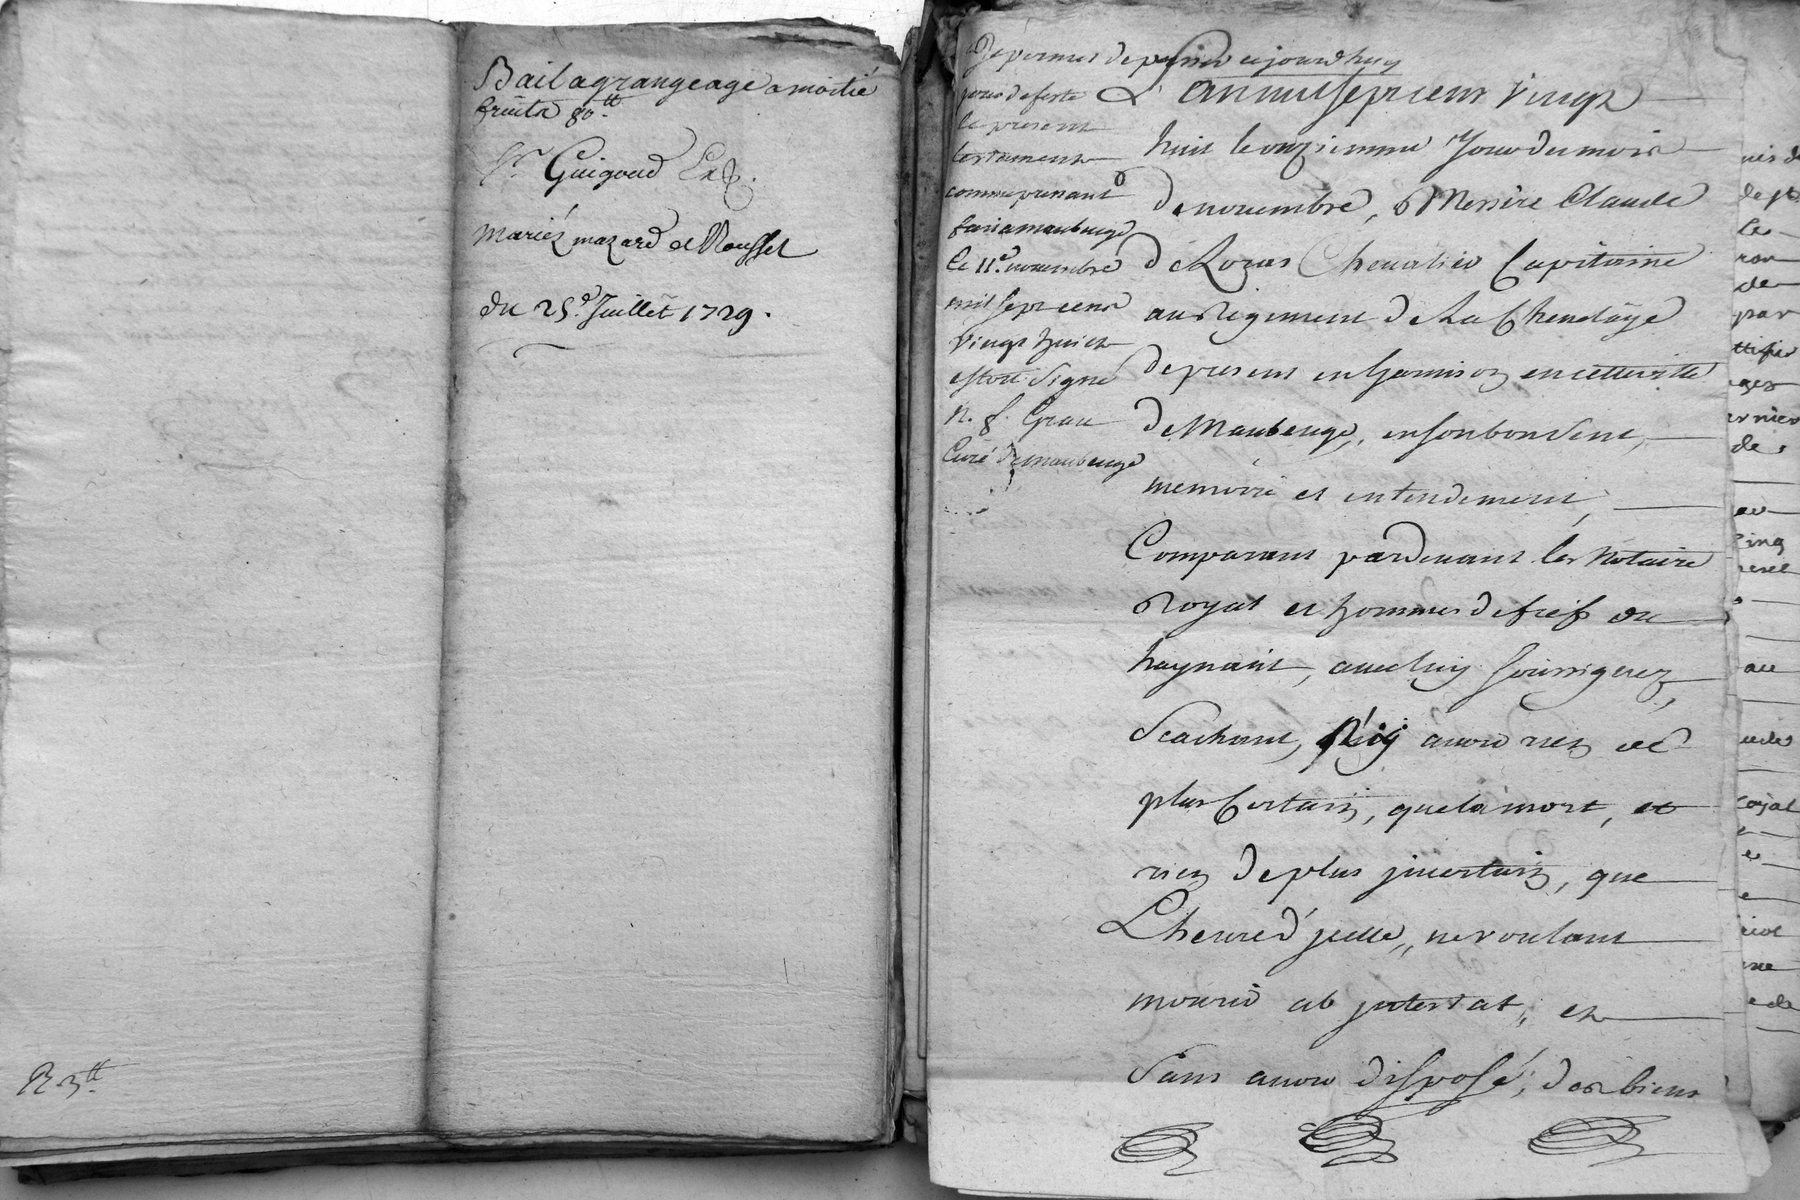 Bail a grangeage a moitié
fruita 80.tt
Sr. Guigoud Exp.
mariéz mazard et Rousset
du 25.e Juillet 1729.
R. 3.tt
Je permes de passer cejourdhuy
jour de feste
le present
testament
comme prenant
fait a maubeuge
le 11.e novembre
mil sept cent
vingt huict
estoit Signé
n. f. Grau
Curé de maubeuge
L'an mil sept cens vingt
huit le onziemme Jour du mois
de novembre, Messire Claude
de Chevalier Capitaine
au Regiment de La Chenelaÿe
de present en Garnison en cette ville
de Maubeuge, en son bon Sens,
memoire et entendement,
Comparant pardevant les Notaire
Royal et hommes de fiefs du
haynaut, avecluy soussignez,
Scachant, n'ÿ avoir rien de
plus Certain, que la mort, et
rien de plus jncertain, que
L'heure d'jcelle, ne voulant
mourir ab jntestat, et
Sans avoir disposé, des biens